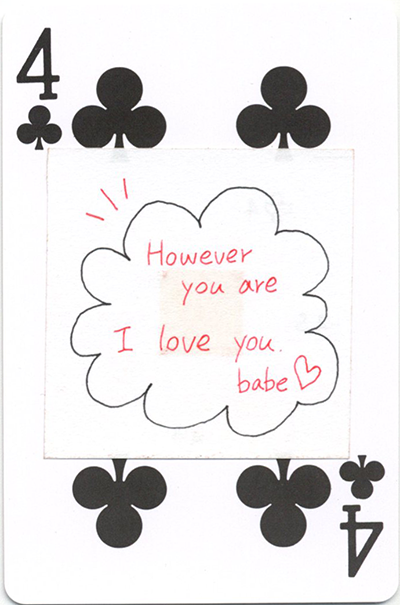 4
However
you are
I love you.
babe
4